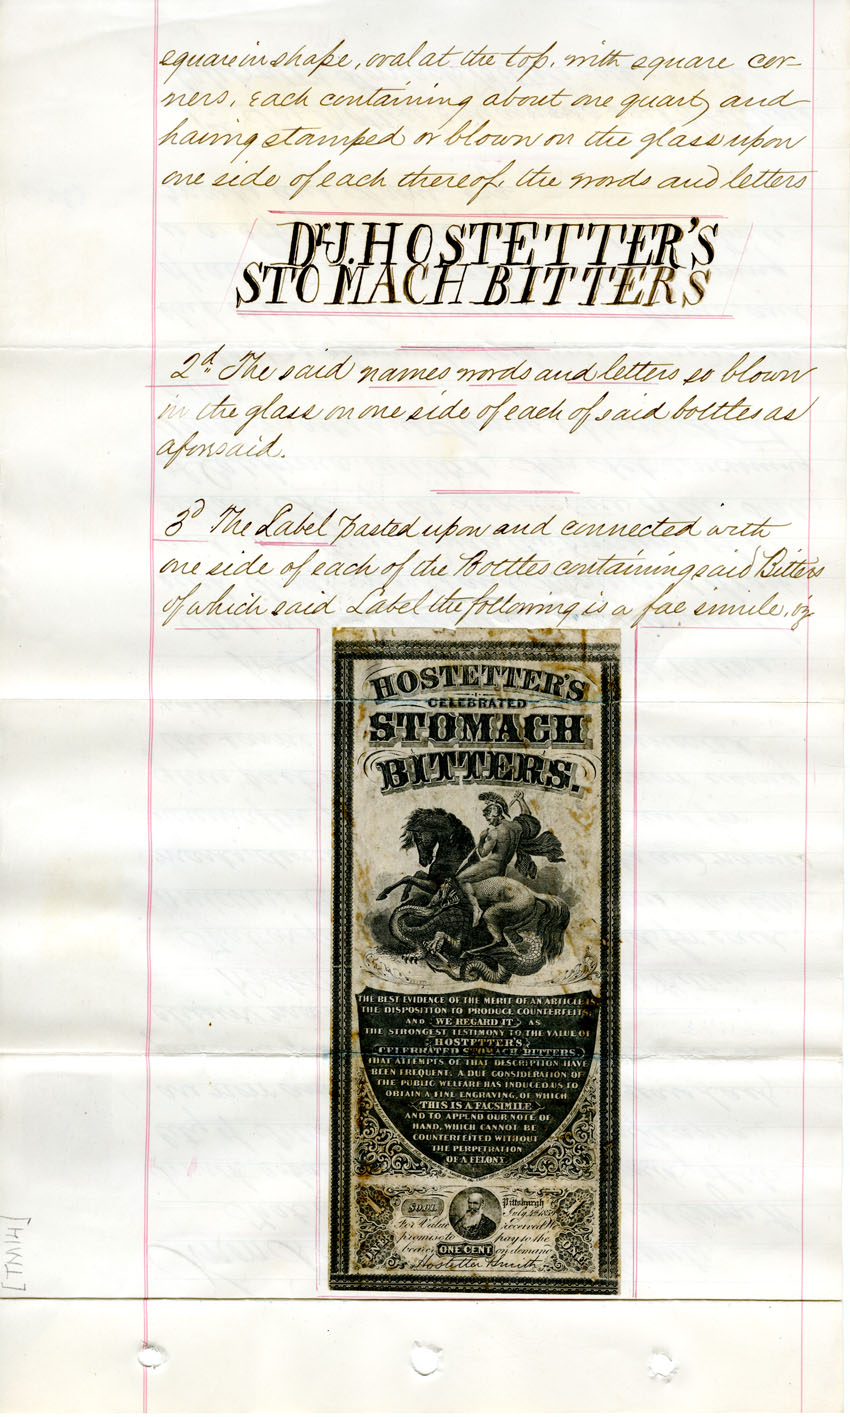 square in shape, oval at the top, with square cor-
ners, Each containing about one quart, and
having stamped or blown on the glass upon
one side of each thereof, the words and letters
Dr. J. HOSTETTER'S
STOMACH BITTERS
2d The said names words and letters so blown
in the glass on one side of each of said bottles as
aforesaid.
3d The Label pasted upon and connected with
one side of each of the Bottles containing said Bitters
of which said Label the following is a fac simile, viz
HOSTETTER'S
CELEBRATED
STOMACH
BITTERS.
THE BEST EVIDENCE OF THE MERIT OF AN ARTICLE IS
THE DISPOSITION TO PRODUCE COUNTERFEITS,
AND WE REGARD IT AS
THE STRONGEST TESTIMONY TO THE VALUE OF
HOSTETTER'S
CELEBRATED STOMACH BITTERS,
THAT ATTEMPTS OF THAT DESCRIPTION HAVE
BEEN FREQUENT. A DUE CONSIDERATION OF
THE PUBLIC WELFARE HAS INDUCED US TO
OBTAIN A FINE ENGRAVING, OF WHICH
THIS IS A FACSIMILE
AND TO APPEND OUR NOTE OF
HAND, WHICH CANNOT BE
COUNTERFEITED WITHOUT
THE PERPETRATION
OF A FELONY.
$0.01. Pittsburgh
July 4th 1859
For Value received We
promise to pay to the
bearer ONE CENT on demand
Hostetter & Smith
[TM14]